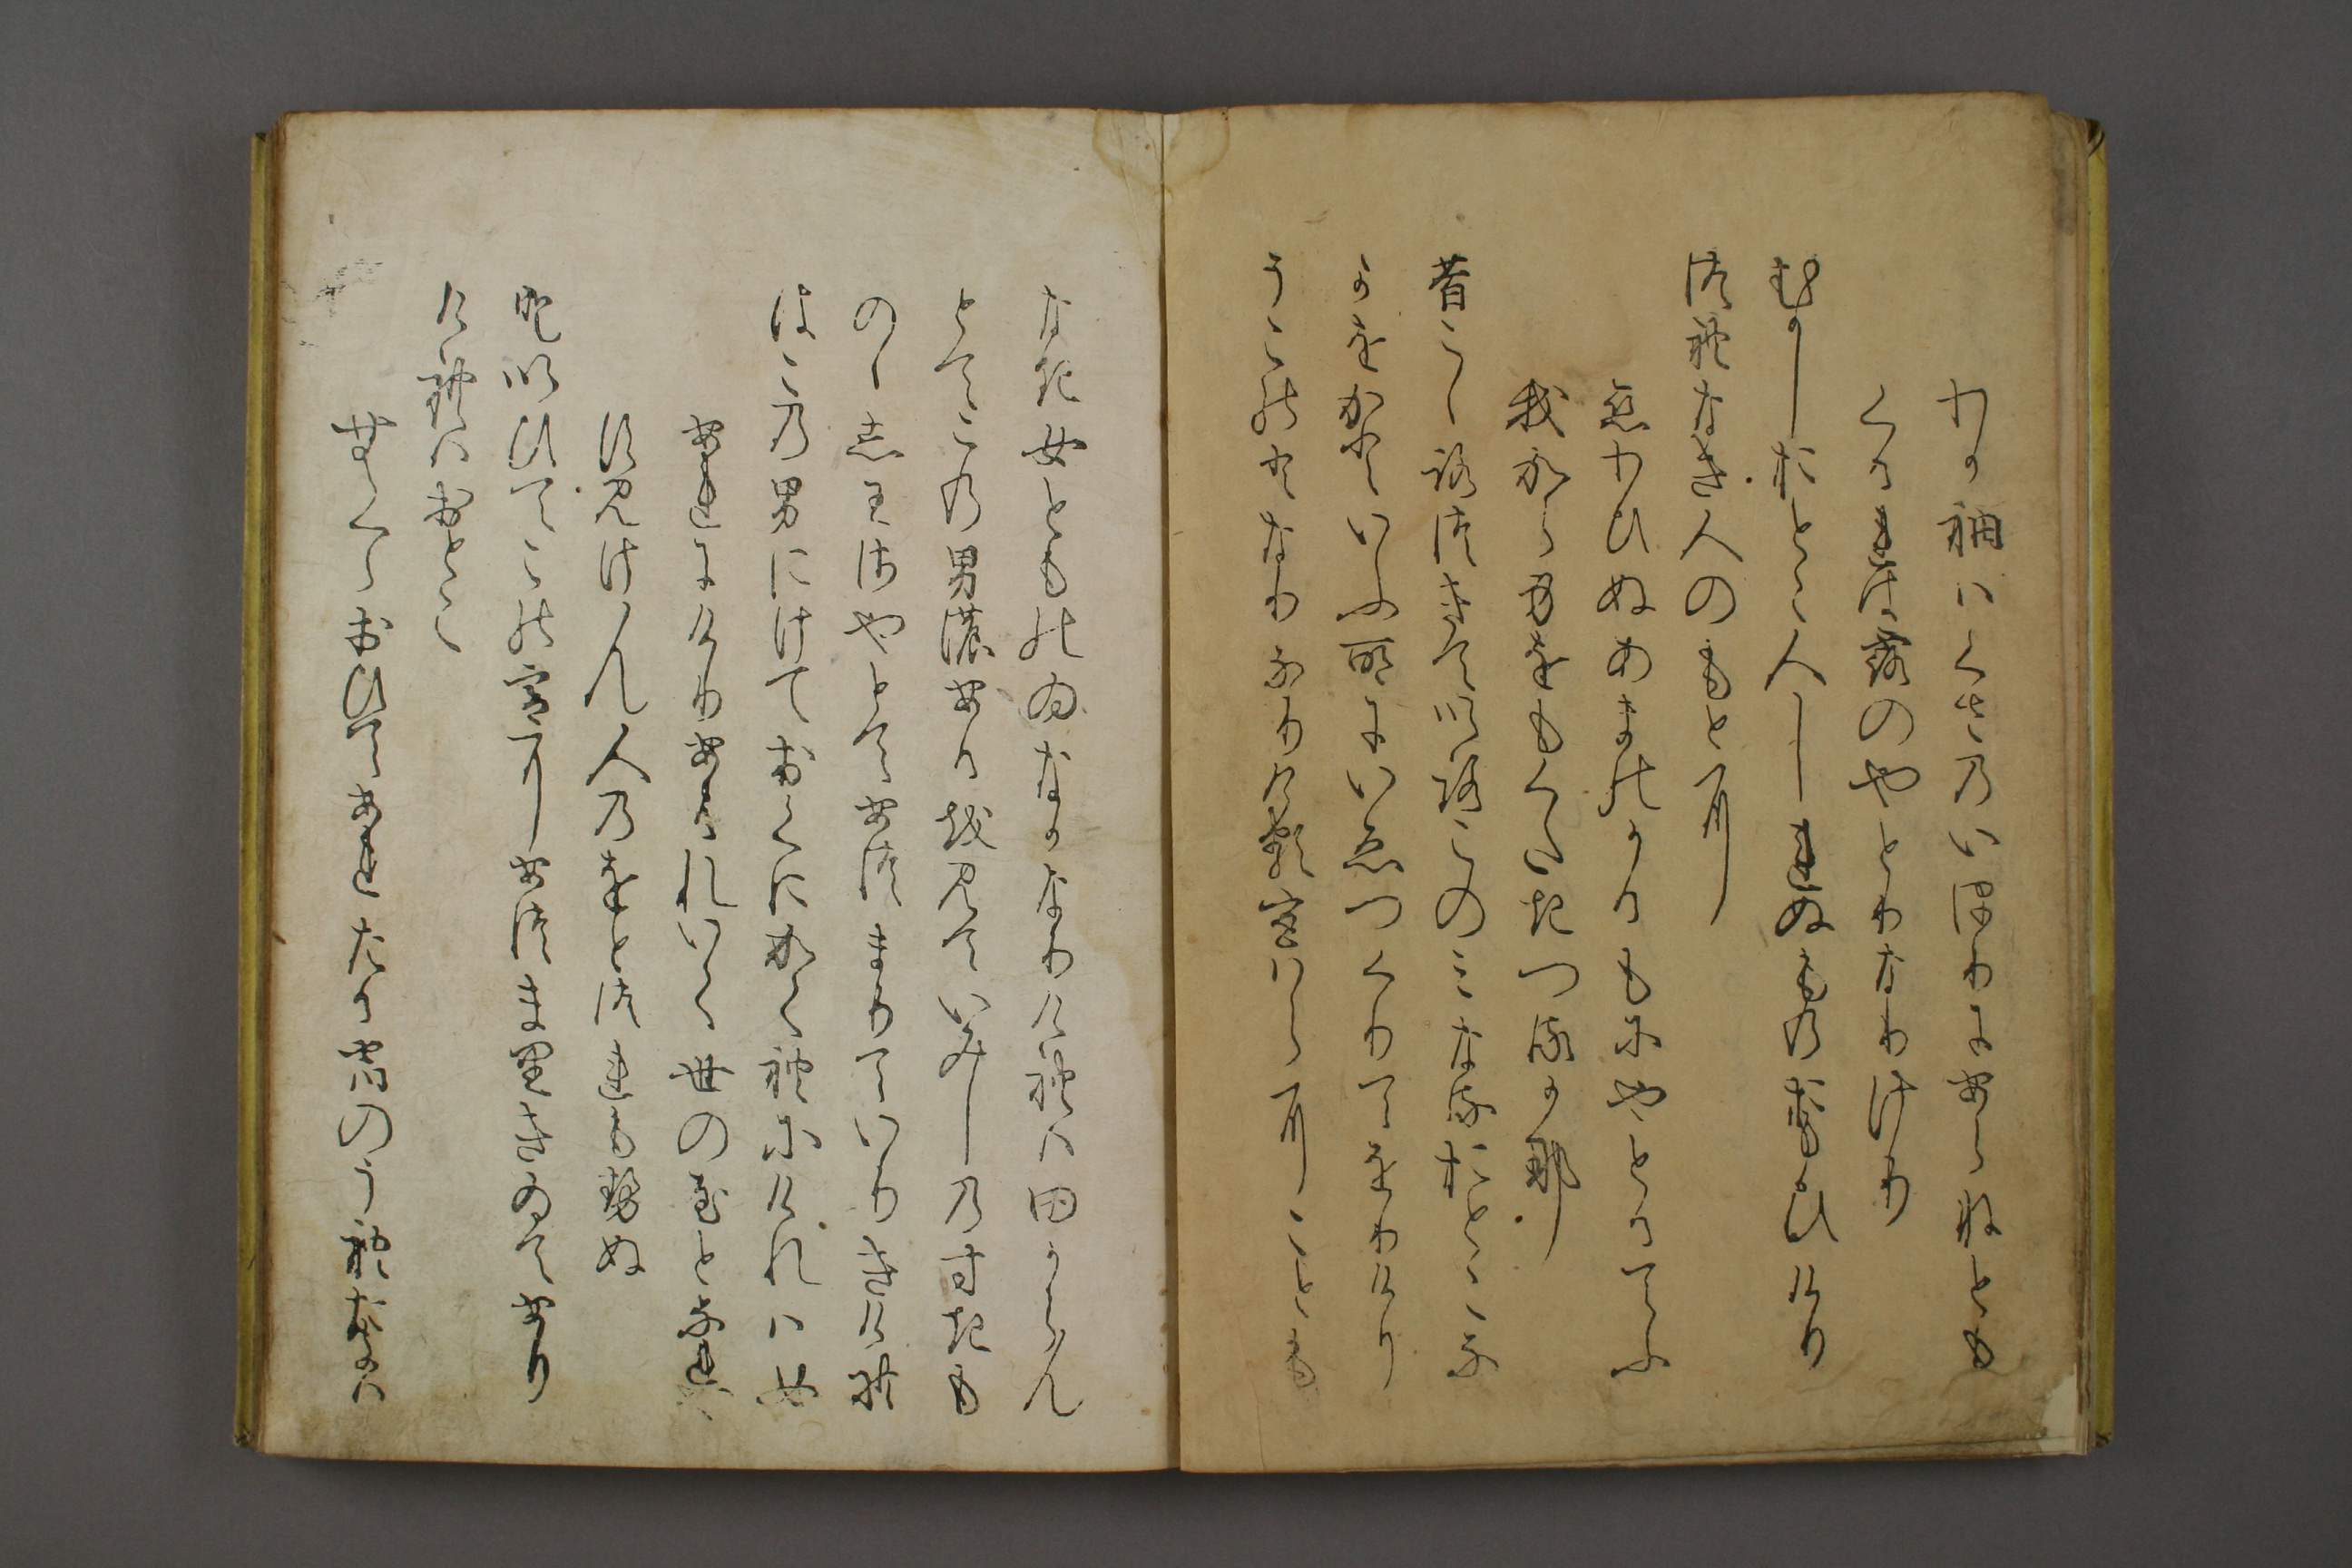 わか袖はくさのいほりにあらねとも
くるれは露のやとりなりけり
むかしおとこ人しれぬもの思ひけり
つれなき人のもとに
恋わひぬあまのかるもにやとるてふ
我から身をもくたきつるかな
昔心つきていろこのみなるおとこな
かをかといふ所にいゑつくりてをりけり
そこのとなりなりける宮はらにこともな
なき女とものゐなかなりけれは田からん
とてこの男のあるを見ていみしのすきも
のゝしわさやとてあつまりていりきけれ
はこの男にけておくにかくれにけれは女
あれにけりあはれいく世のやとなれや
すみけん人のをとつれもせぬ
といひてこの宮にあつまりきゐてあり
けれはおとこ
むくらおひてあれたるやとのうれたきは